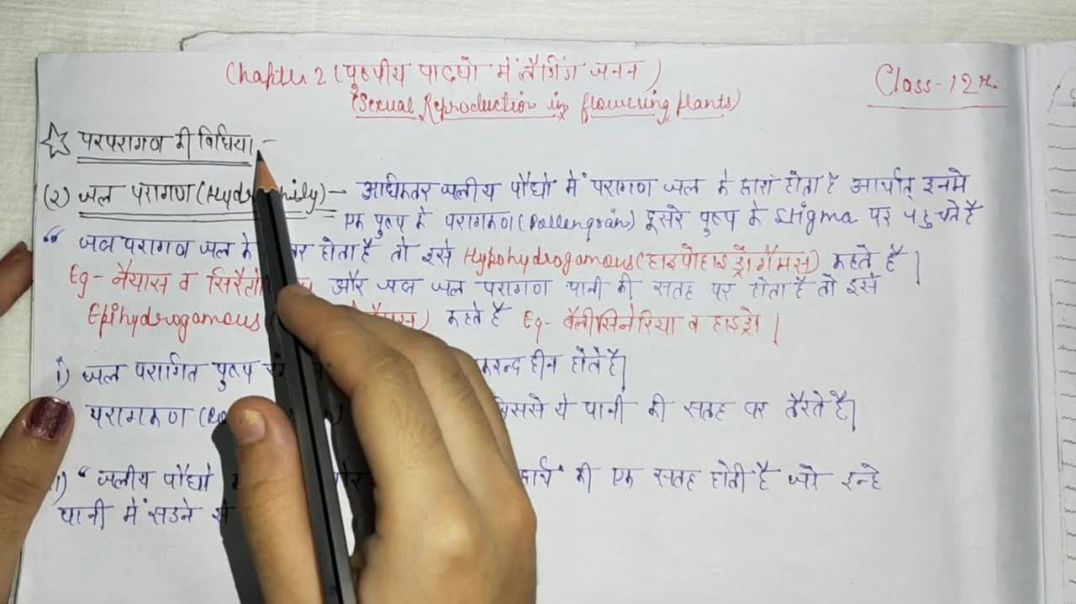 Chapter 2 (पुष्पीय पादपो में लैंगिंग जनन)
(Sexual Reproduction in flowering plants)
Class-12th
परपरागण की विधिया -
(२) जल परागण ( - अधिकतर जलीय पौधो में परागण जल के द्वारा होता है अर्थात् इनमे
एक पुष्प के परागकण (Pollengrain) दूसरे पुष्प के stigma पर पहुचते है
" जब परागण जल के होता है तो इसे Hypohydrogamous (हाइपोहाइड्रोगैमस) कहते है |
Eg - नैयास व और जब जल परागण पानी की सतह पर होता है तो इसे
Epihydrogamous कहते है Eg - वैलीसिनेरिया व हाइड्रो |
i) जल परागित पुष्प हीन होते है|
परागकण ( जिससे ये पानी की सतह पर तैरते है|
" जलीय पौधो की एक सतह होती है जो इन्हे
पानी में सडने से